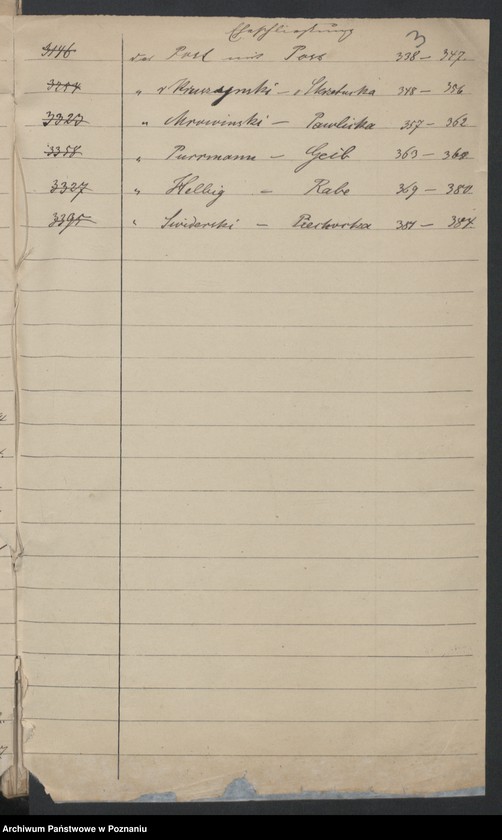 Eheschließung
3
3146 der Post mit Poss 338 — 347.
" v Kruszynski — v Skrzetuska 348 — 356
3323 " Mrowinski — Pawlicka 357 — 362
3358 " Purrmann — Geib 363 — 368
3327 " Helbig — Rabe 369 — 380
3395 " Swiderski — Piechocka 381 — 384
Archiwum Państwowe w Poznaniu